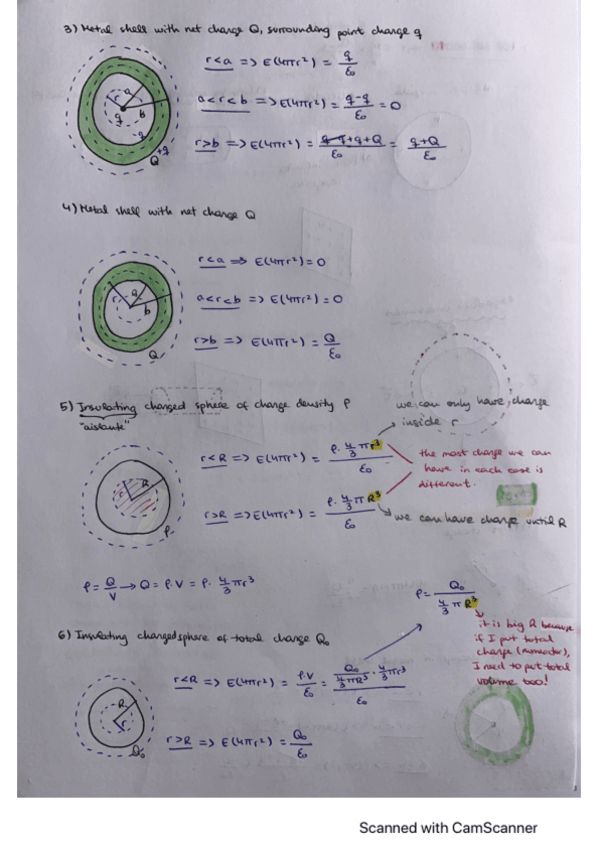 3) Metal shell with net charge Q, surrounding point charge q
r<a => E(4πr²) = q/ε₀
a<r<b => E(4πr²) = q-q/ε₀ = 0
r>b => E(4πr²) = q-q+q+Q/ε₀ = q+Q/ε₀
r a b q -q +q Q
4) Metal shell with net charge Q
r<a => E(4πr²) = 0
a<r<b => E(4πr²) = 0
r>b => E(4πr²) = Q/ε₀
r a b Q
5) Insulating charged sphere of charge density ρ
"aislante"
we can only have charge
inside r
r<R => E(4πr²) = ρ·4/3 πr³/ε₀
the most charge we can
have in each case is
different.
r>R => E(4πr²) = ρ·4/3 πR³/ε₀
we can have charge until R
r R ρ
ρ = Q/V → Q = ρ·V = ρ· 4/3 πr³
ρ = Q₀/4/3 π R³
6) Insulating charged sphere of total charge Q₀
it is big R because
if I put total
charge (numerator),
I need to put total
volume too!
r<R => E(4πr²) = ρ·V/ε₀ = Q₀/4/3πR³ · 4/3πr³/ε₀
r>R => E(4πr²) = Q₀/ε₀
R r Q₀
Scanned with CamScanner